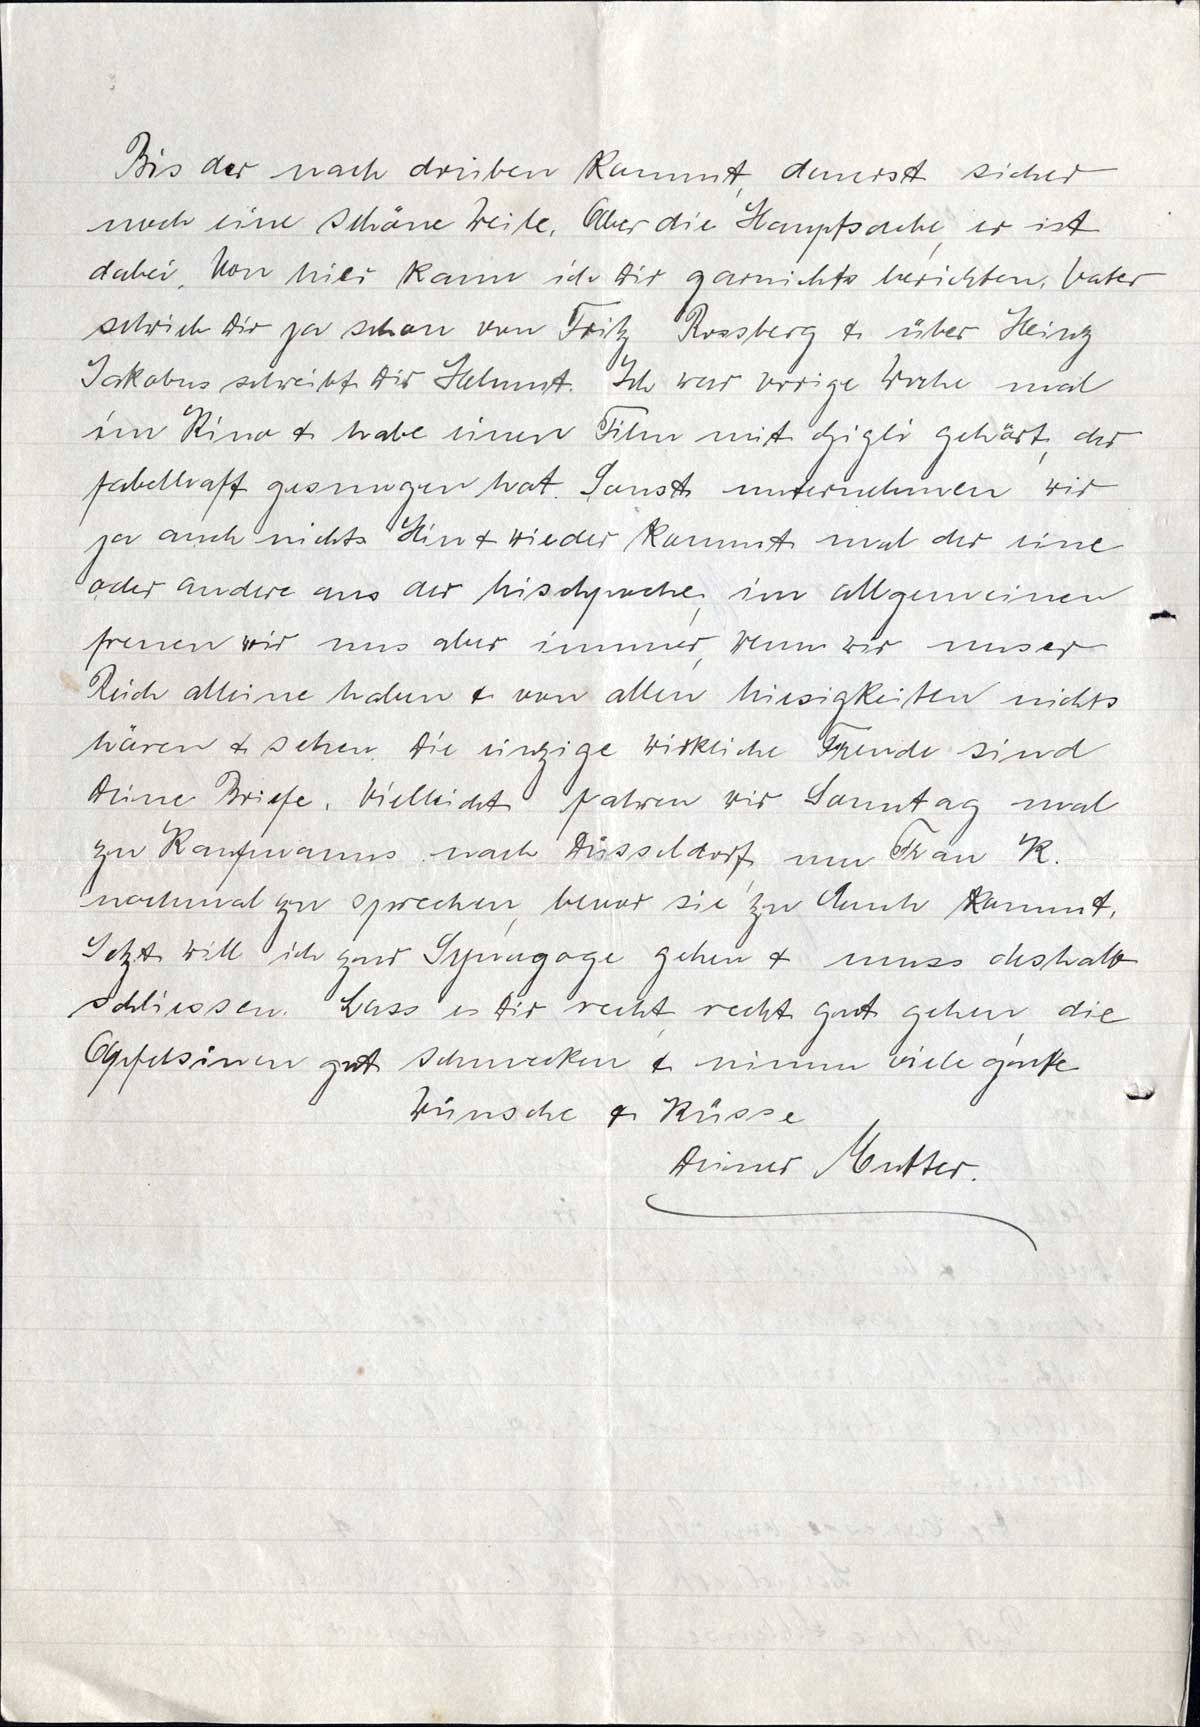 Bis der nach drüben kommt, dauerst sicher
noch eine schöne Weile. Aber die Hauptsache, er ist
dabei. Von hier kann ich Dir garnichts berichten. Vater
schrieb Dir ja schon von Fritz Rossberg & über Heinz
Jakobus schreibt Dir Helmut. Ich war vorige Woche mal
im Kino & habe einen Film mit Gigli gehört, der
fabelhaft gesungen hat. Sonst unternehmen wir
ja auch nichts. Hin & wieder kommt mal der eine
oder andere aus der Mischpoche, im allgemeinen
freuen wir uns aber immer, wenn wir unser
Reich alleine haben & von allen hiesigkeiten nichts
hören & sehen. Die einzige wirkliche Freude sind
Deine Briefe. Vielleicht fahren wir Sonntag mal
zu Kaufmanns nach Düsseldorf, um Frau K.
nochmal zu sprechen, bevor sie zu Euch kommt.
Jetzt will ich zur Synagoge gehen & muss deshalb
schliessen. Lass es Dir recht, recht gut gehen, die
Apfelsinen gut schmecken & nimm viele gute
Wünsche & Küsse
Deiner Mutter.